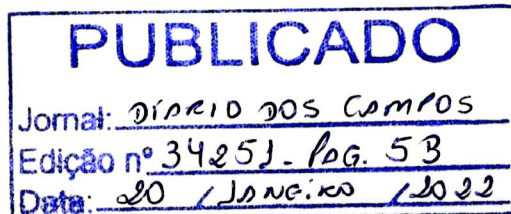 PUBLICADO
Jornal: DÍARIO DOS CAMPOS
Edição nº 34251 - PAG. 5B
Data: 20 / JANEIRO / 2022